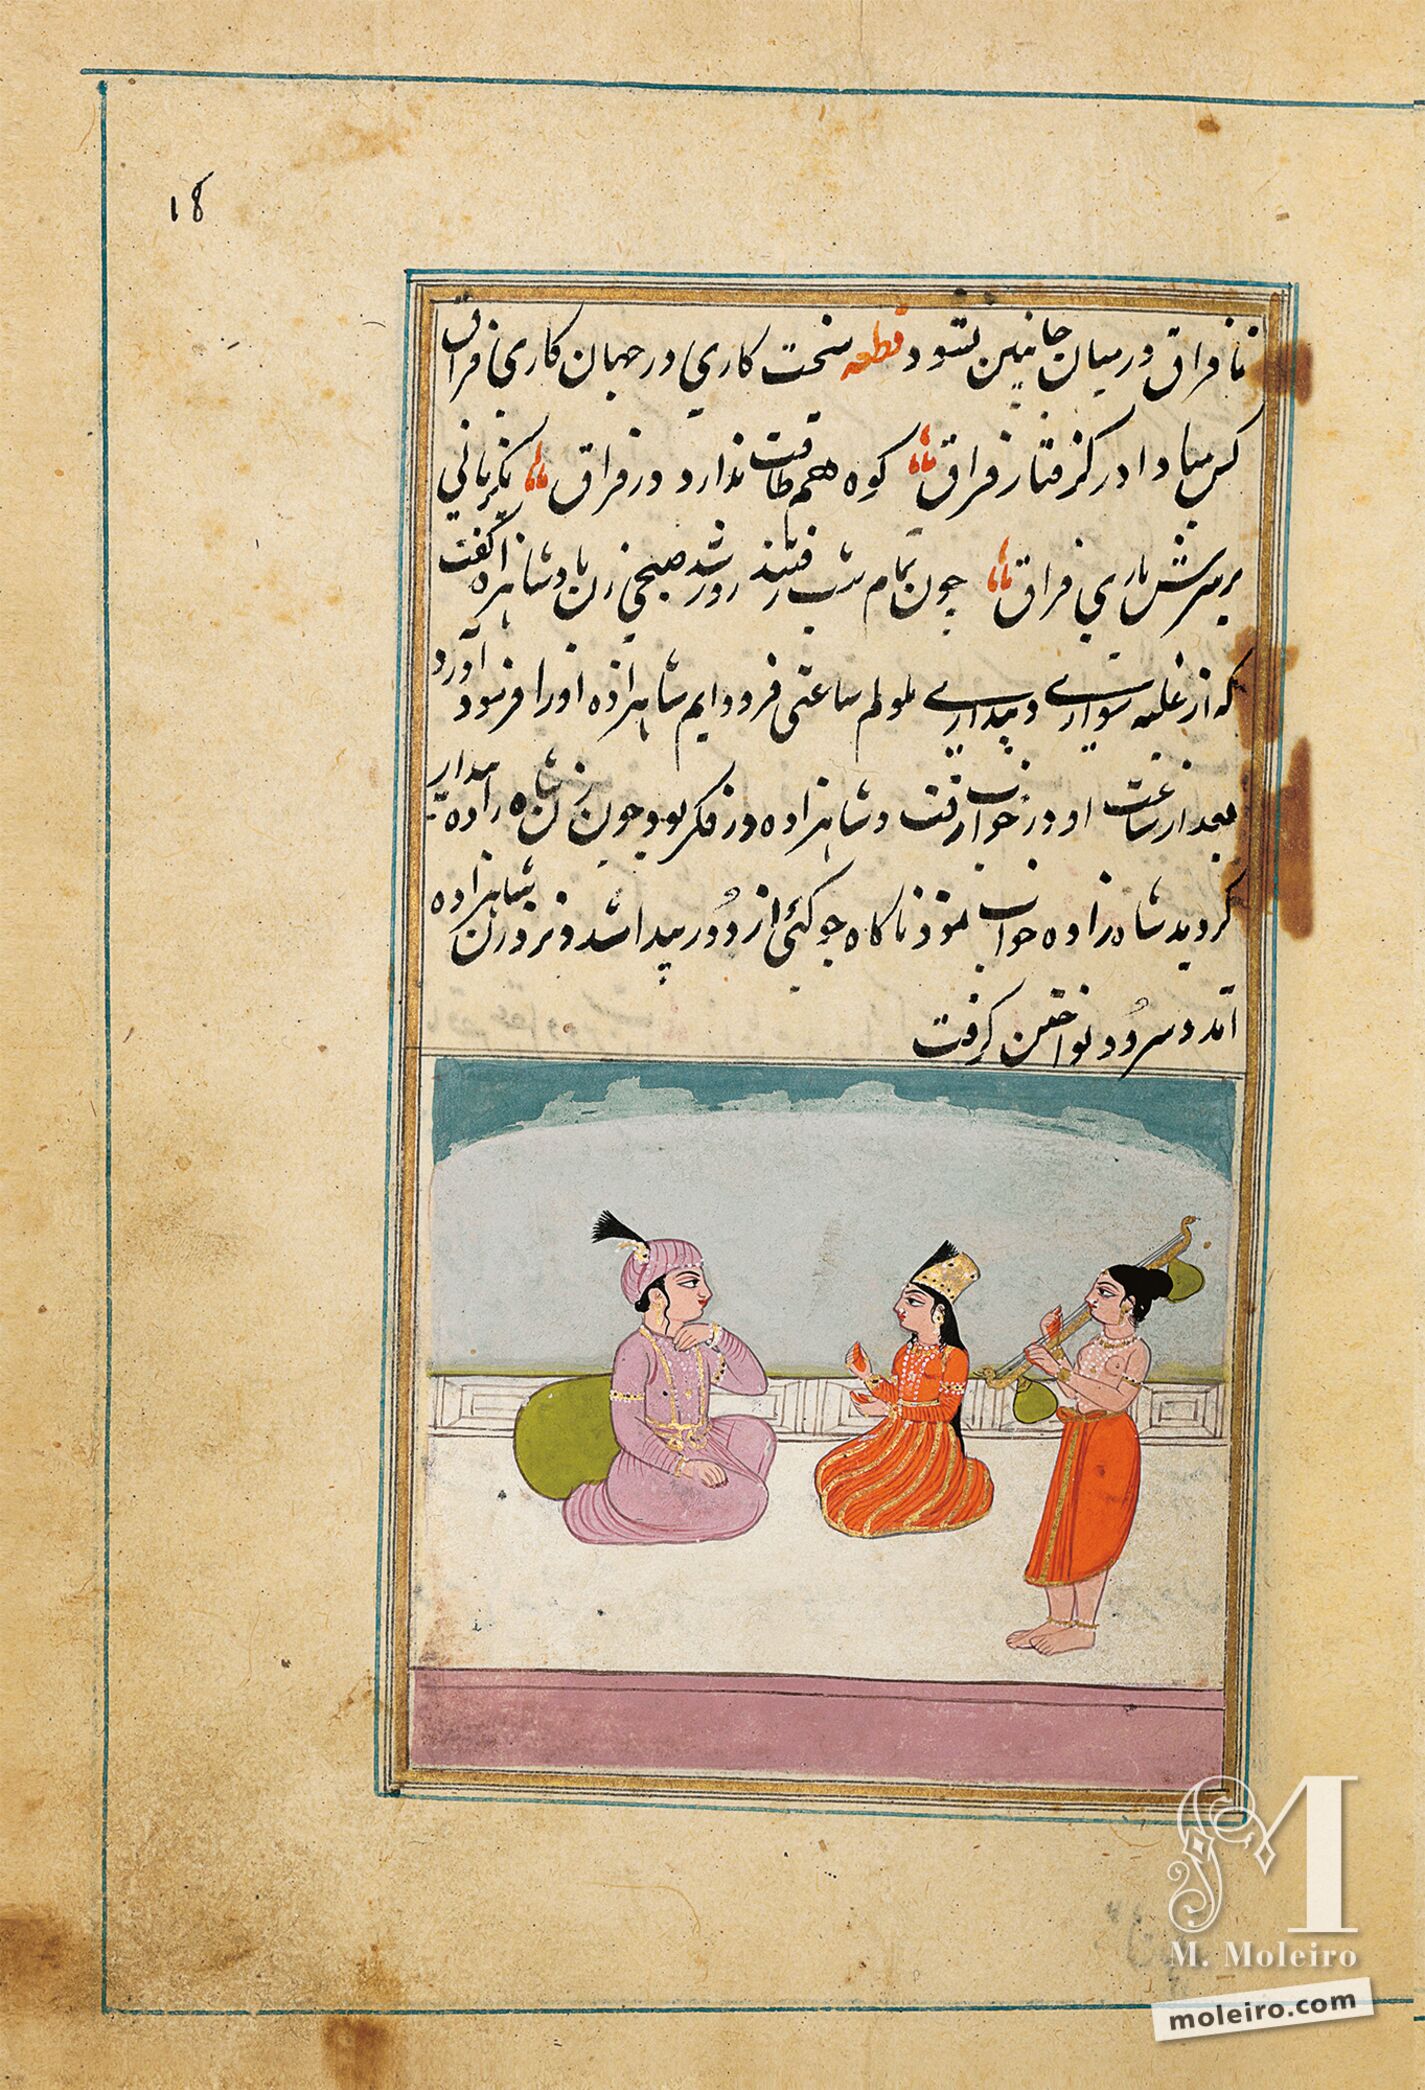 18
تا فراق درمیان جانبین نشود قطعه سخت کاری در جهان کاری فراق
کس مبادا در گرفتار فراق کوه هم طاقت ندارد در فراق
بر سرش باری فراق چون تمام شب رفتند روز شد صبحی زن بادشاهزاده گفت
که از غلبه سواری و بیداری ملولم ساعتی فرود ایم شاهزاده اورا فرود آورد
بعد از ساعت او در خواب رفت و شاهزاده در فکر بود چون زن شاه زاده بیدار
گردید شاه زاده خواب نمود ناگاه جوگئی از دور پیدا شد و نزد زن شاهزاده
آمد و سرود نواختن گرفت
M
M. Moleiro
moleiro.com